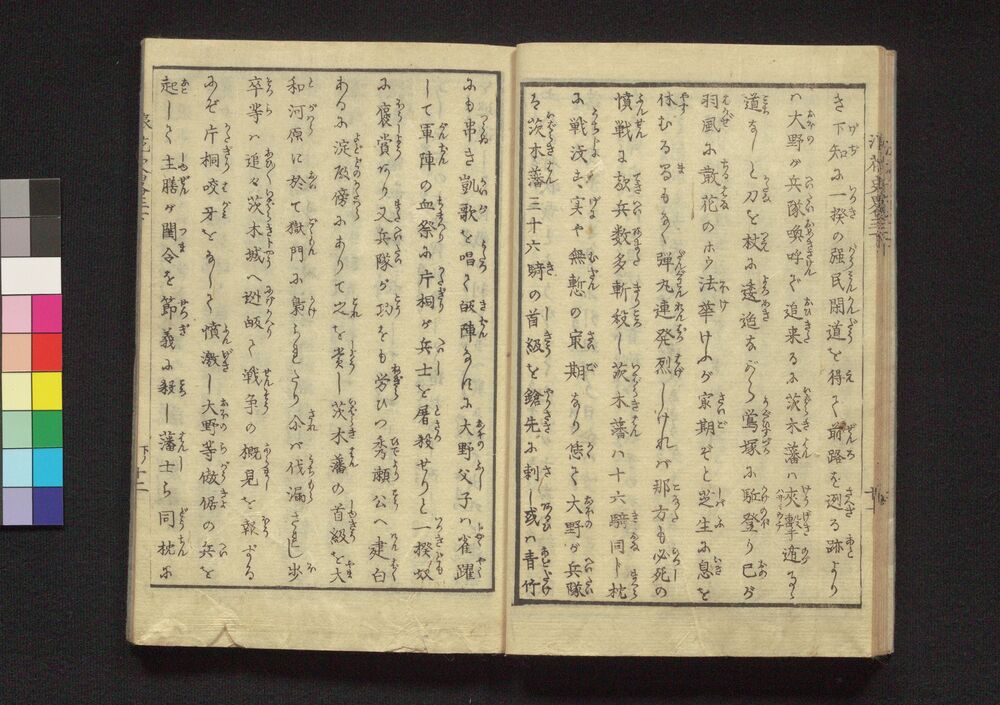 き下知に一揆の強民間道を得て前路を遮る跡より
ハ大野が兵隊喚呼で追来るに茨木藩ハ夾撃遁るゝ
道なしと刀を杖に逶迤ながら鶯塚に駈登り已が
羽風に散花のホウ法華けふが最期ぞと芝生に息を
休むる間もなく弾丸連発烈しけれバ那方も必死の
憤戦に敵兵数多斬殺し茨木藩ハ十六騎同ト枕
に戦没き実や無慙の最期なり偖て大野が兵隊
る茨木藩三十六騎の首級を鎗先に刺し或ハ青竹
にも串き凱歌を唱て皈陣なすに大野父子ハ雀躍
して軍陣の血祭に片桐が兵士を屠殺せりと一揆奴
に褒賞あり又兵隊が功をも労ひつ秀頼公へ建白
あるに淀殿傍にありて之を賞し茨木藩の首級を大
和河原に於て獄門に梟られたり尓バ伐漏されし歩
卒等ハ追々茨木城へ迯皈て戦争の概見を報ずる
にぞ片桐咬牙をなして憤激し大野等倣倨の兵を
起して主膳が閨令を節義に殺し藩士ら同枕に
下ノ十二